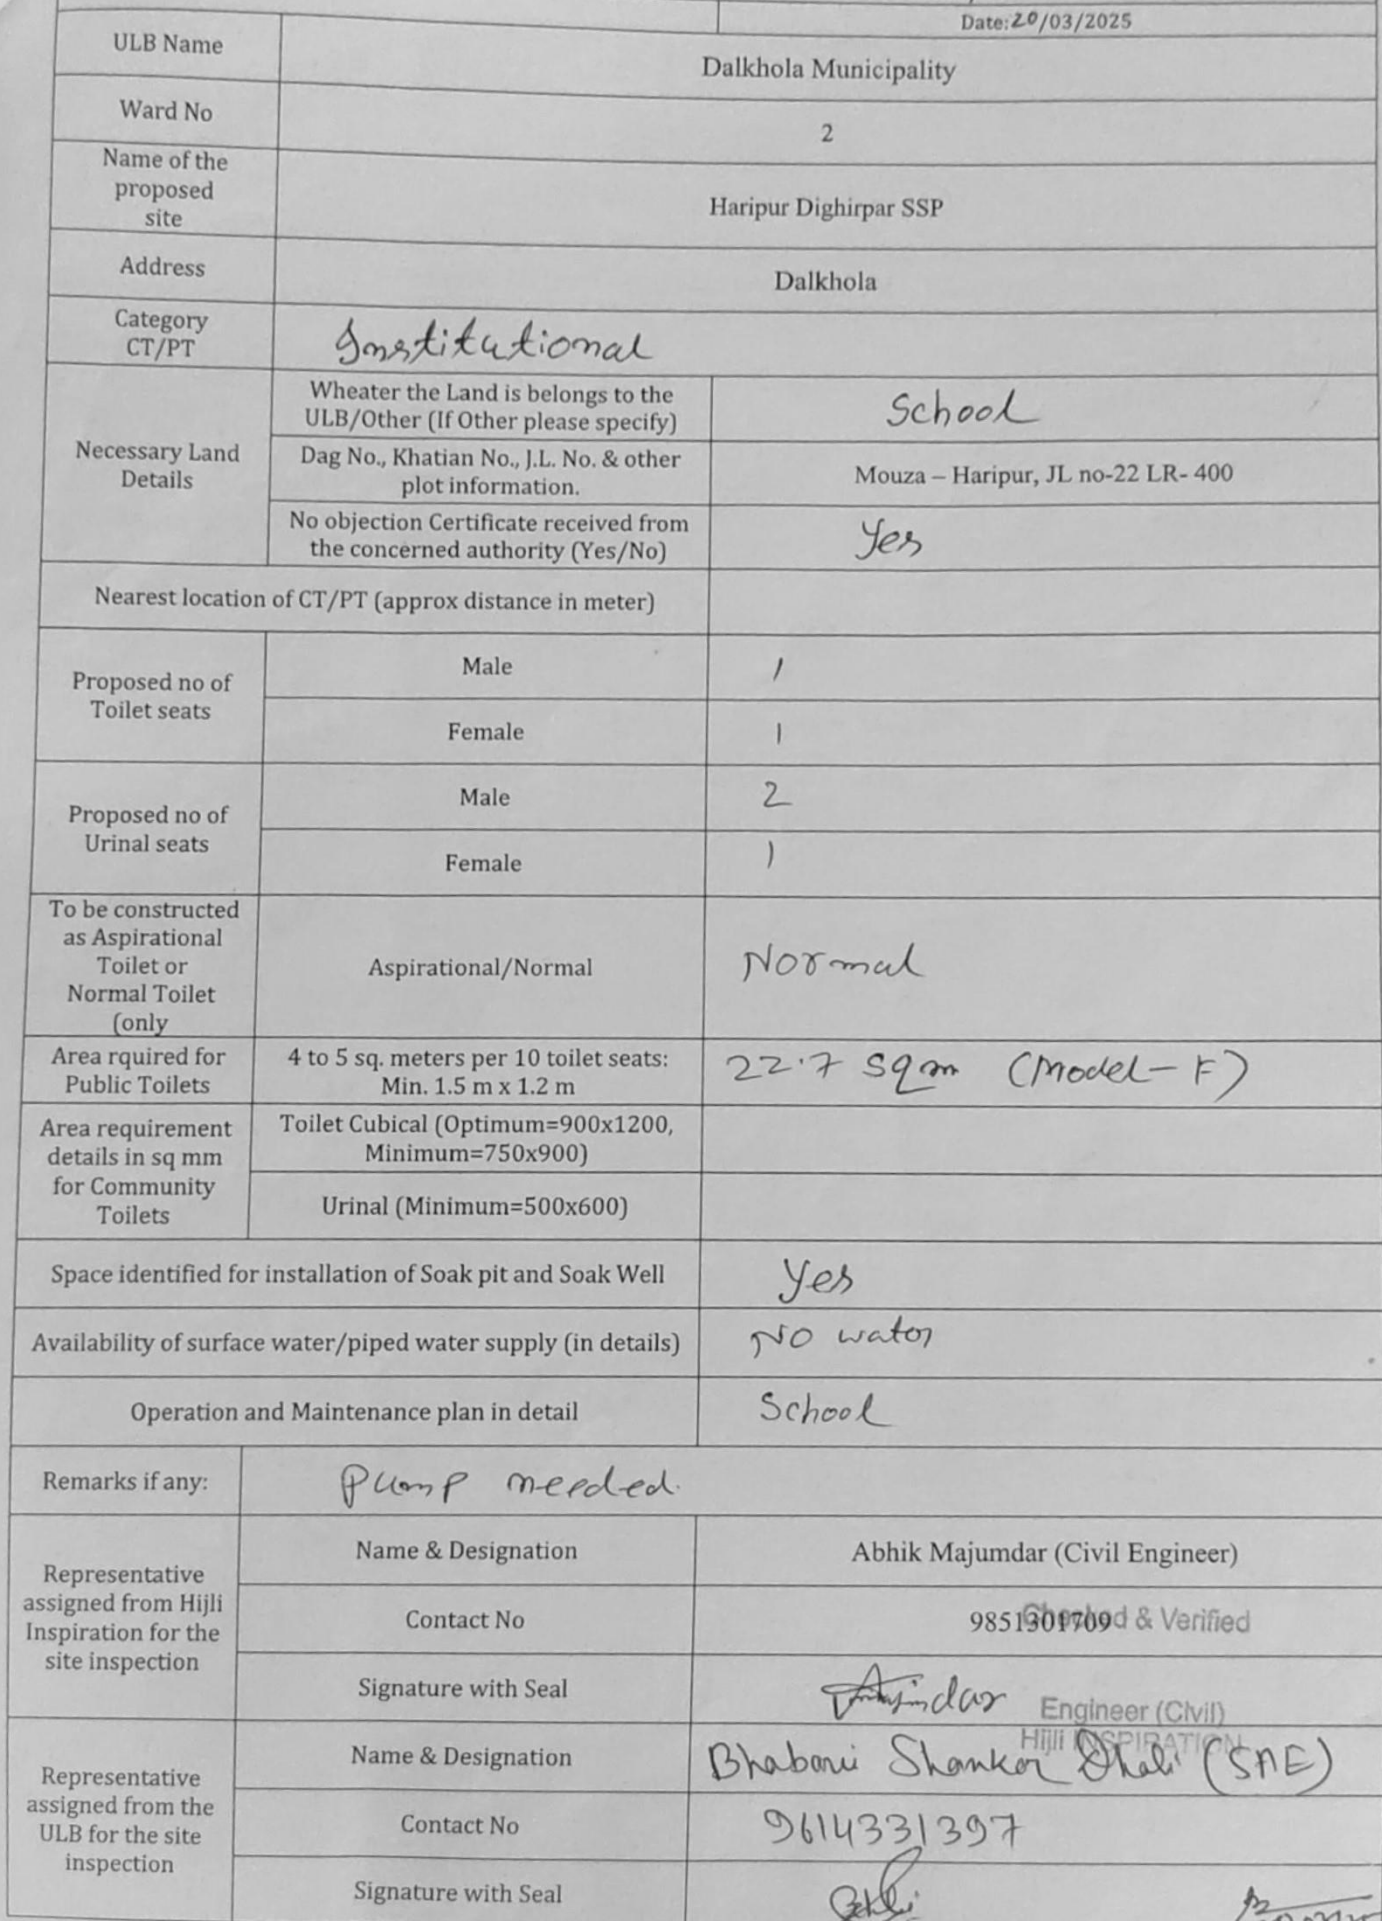 Date:20/03/2025
ULB Name
Dalkhola Municipality
Ward No
2
Name of the
proposed
site
Haripur Dighirpar SSP
Address
Dalkhola
Category
CT/PT
Institutional
Necessary Land
Details
Wheater the Land is belongs to the
ULB/Other (If Other please specify)
School
Dag No., Khatian No., J.L. No. & other
plot information.
Mouza – Haripur, JL no-22 LR- 400
No objection Certificate received from
the concerned authority (Yes/No)
Yes
Nearest location of CT/PT (approx distance in meter)
Proposed no of
Toilet seats
Male
1
Female
1
Proposed no of
Urinal seats
Male
2
Female
1
To be constructed
as Aspirational
Toilet or
Normal Toilet
(only
Aspirational/Normal
Normal
Area rquired for
Public Toilets
4 to 5 sq. meters per 10 toilet seats:
Min. 1.5 m x 1.2 m
22.7 sqm (Model-F)
Area requirement
details in sq mm
for Community
Toilets
Toilet Cubical (Optimum=900x1200,
Minimum=750x900)
Urinal (Minimum=500x600)
Space identified for installation of Soak pit and Soak Well
Yes
Availability of surface water/piped water supply (in details)
No water
Operation and Maintenance plan in detail
School
Remarks if any:
Pump needed.
Representative
assigned from Hijli
Inspiration for the
site inspection
Name & Designation
Abhik Majumdar (Civil Engineer)
Contact No
9851301709
Checked & Verified
Signature with Seal
Engineer (Civil)
Hijli INSPIRATION
Representative
assigned from the
ULB for the site
inspection
Name & Designation
Bhabani Shankar Dhali (SAE)
Contact No
9614331397
Signature with Seal